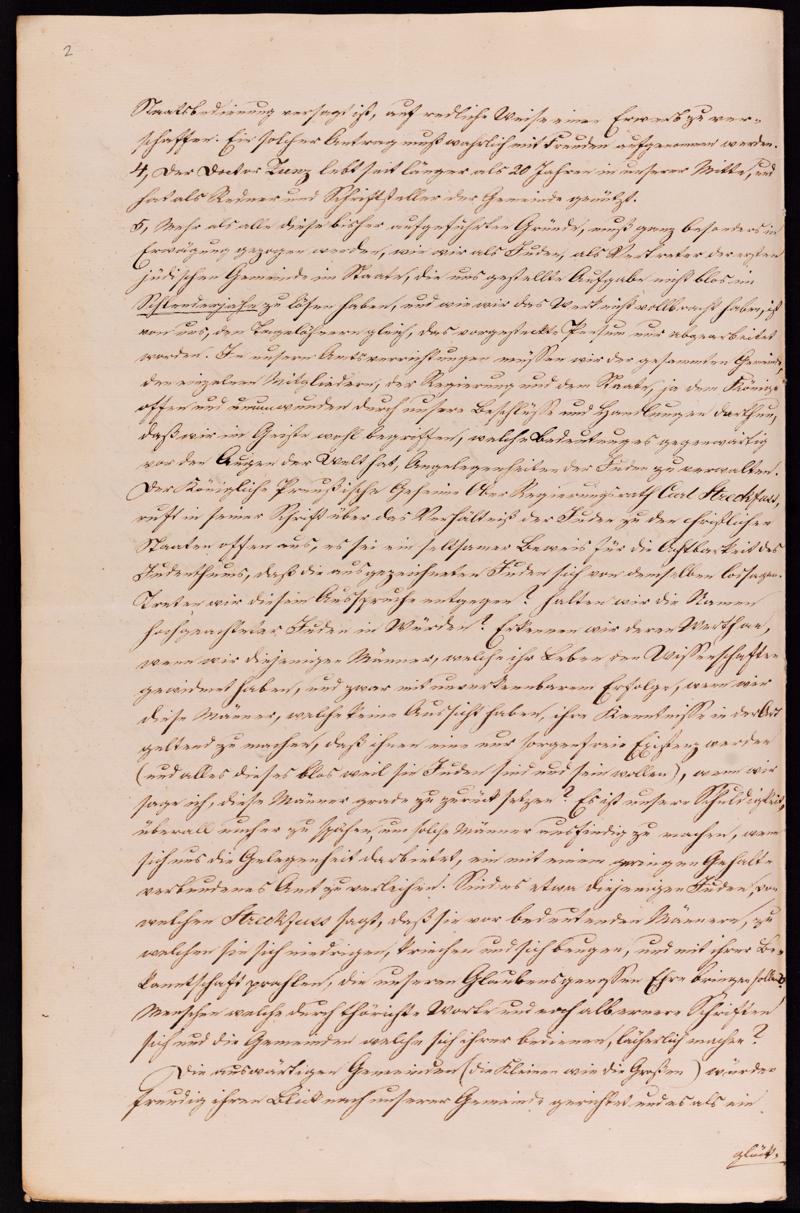 2
Staatsbedienung versagt ist, auf redliche Weise einen Erwerb zu ver-
schaffen. Ein solcher Antrag muß wahrlich mit Freuden aufgenommen werden.
4, Der Doctor Zunz lebt seit länger als 20 Jahren in unserer Mitte, und
hat als Redner und Schriftsteller der Gemeinde genützt.
5, Mehr als alle diese bisher aufgeführten Gründe, muß ganz besonders in
Erwägung gezogen werden, wie wir als Juden, als Vertreter der ersten
jüdischen Gemeinde im Staate, die uns gestellte Aufgabe nicht blos im
Schlendrian zu lösen haben, und wie wir das Werk nicht vollbracht haben, ist
von uns, den Tagelöhnern gleich, das vorgesteckte Pensum nur abgearbeitet
worden. In unsern Amtsverrichtungen müssen wir der gesammten Gemeinde,
den einzelnen Mitgliedern, der Regierung und dem Staate, ja dem Könige
offen und unumwunden durch unsere Beschlüsse und Handlungen darthun,
daß wir im Geiste wohl begriffen, welche Bedeutung es gegenwärtig
vor den Augen der Welt hat, Angelegenheiten der Juden zu verwalten.
Der Königliche Preußische Geheime Ober Regierungsrath Carl Streckfuss,
ruft in seiner Schrift über das Verhältniß der Juden zu den christlichen
Staaten offen aus, es sei ein seltsamer Beweis für die Achtbarkeit des
Judenthums, daß die ausgezeichneten Juden sich von demselben lossagen.
Treten wir diesem Ausspruche entgegen? Halten wir die Namen
hochgeachteter Juden in Würden? Erkennen wir deren Werth an,
wenn wir diejenigen Männer, welche ihr Leben den Wissenschaften
gewidmet haben, und zwar mit unverkennbarem Erfolge, wenn wir
diese Männer, welche keine Aussicht haben, ihre Kenntnisse in der Art
geltend zu machen, daß ihnen eine nur sorgenfreie Existenz werde
(und alles dieses blos weil sie Juden sind und sein wollen), wenn wir
sage ich, diese Männer grade zu zurück setzen? Es ist unsere Schuldigkeit,
überall umher zu spähen, um solche Männer ausfindig zu machen, wenn
sich uns die Gelegenheit darbietet, ein mit einem geringen Gehalte
verbundenes Amt zu verleihen. Sind es etwa diejenigen Juden, von
welchen Streckfuss sagt, daß sie vor bedeutenden Männern, zu
welchen sie sich niedrigen, kriechen und sich beugen, und mit ihrer Be-
kanntschaft prahlen, die unseren Glaubensgenossen Ehre bringen sollen?
Menschen welche durch thörichte Worte und noch albernere Schriften
sich und die Gemeinden welche sich ihrer bedienen, lächerlich machen?
Die auswärtigen Gemeinden (die Kleinen wie die Großen) würden
freudig ihren Blick nach unserer Gemeinde gerichtet und es als ein
glück-